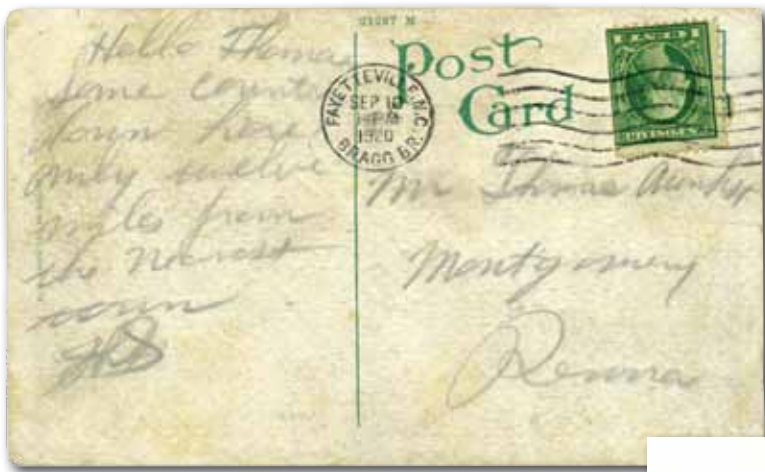 Hello Thomas
some country
down here
only twelve
miles from
the nearest
town
Post
Card
FAYETTEVILLE, N.C.
SEP 10
PM
1920
BRAGG BR.
Mr Thomas
Montgomery
Penna